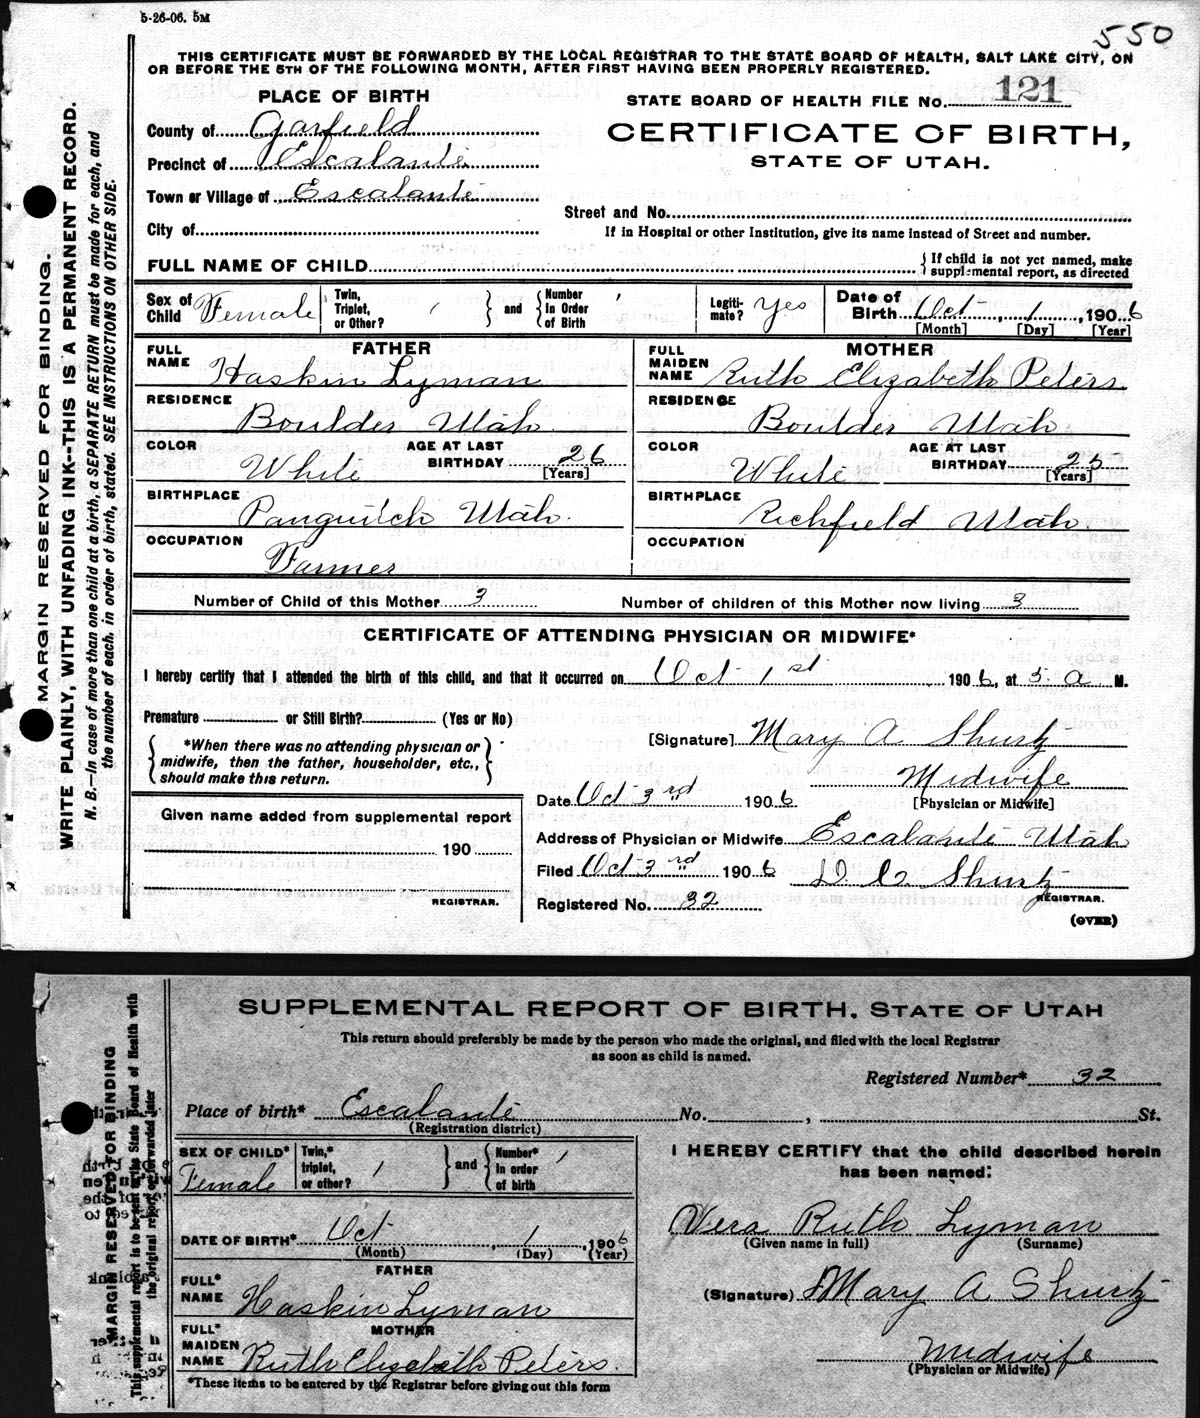 5-26-06. 5M
550
THIS CERTIFICATE MUST BE FORWARDED BY THE LOCAL REGISTRAR TO THE STATE BOARD OF HEALTH, SALT LAKE CITY, ON
OR BEFORE THE 5TH OF THE FOLLOWING MONTH, AFTER FIRST HAVING BEEN PROPERLY REGISTERED.
MARGIN RESERVED FOR BINDING.
WRITE PLAINLY, WITH UNFADING INK--THIS IS A PERMANENT RECORD.
N. B.—In case of more than one child at a birth, a SEPARATE RETURN must be made for each, and
the number of each, in order of birth, stated. SEE INSTRUCTIONS ON OTHER SIDE.
PLACE OF BIRTH
County of Garfield
Precinct of Escalante
Town or Village of Escalante
City of
STATE BOARD OF HEALTH FILE No. 121
CERTIFICATE OF BIRTH,
STATE OF UTAH.
Street and No.
If in Hospital or other Institution, give its name instead of Street and number.
FULL NAME OF CHILD { If child is not yet named, make
supplemental report, as directed
Sex of Child Female Twin, Triplet, or Other? 1 } and { Number In Order of Birth 1 Legiti-mate? Yes Date of Birth Oct 1, 1906
[Month] [Day] [Year]
FATHER
FULL NAME Haskin Lyman
RESIDENCE Boulder Utah.
COLOR White AGE AT LAST BIRTHDAY 26
[Years]
BIRTHPLACE Panguitch Utah.
OCCUPATION Farmer
MOTHER
FULL MAIDEN NAME Ruth Elizabeth Peters
RESIDENCE Boulder Utah
COLOR White AGE AT LAST BIRTHDAY 25
[Years]
BIRTHPLACE Richfield Utah.
OCCUPATION
Number of Child of this Mother 3 Number of children of this Mother now living 3
CERTIFICATE OF ATTENDING PHYSICIAN OR MIDWIFE*
I hereby certify that I attended the birth of this child, and that it occurred on Oct 1st 1906, at 5. a M.
Premature or Still Birth? (Yes or No)
{ *When there was no attending physician or
midwife, then the father, householder, etc.,
should make this return. }
[Signature] Mary A Shurtz
Midwife
[Physician or Midwife]
Date Oct 3rd 1906
Given name added from supplemental report
190
REGISTRAR.
Address of Physician or Midwife Escalante Utah
Filed Oct 3rd 1906 Shurtz
REGISTRAR.
Registered No. 32
(OVER)
SUPPLEMENTAL REPORT OF BIRTH, STATE OF UTAH
This return should preferably be made by the person who made the original, and filed with the local Registrar
as soon as child is named.
MARGIN RESERVED FOR BINDING
This supplemental report is to be sent to the State Board of Health with
the original report, or forwarded later
Registered Number* 32
Place of birth* Escalante No. , St.
(Registration district)
SEX OF CHILD* Female Twin,* triplet, or other? 1 } and { Number* in order of birth 1
DATE OF BIRTH* Oct 1, 1906
(Month) (Day) (Year)
FATHER
FULL* NAME Haskin Lyman
MOTHER
FULL* MAIDEN NAME Ruth Elizabeth Peters.
*These items to be entered by the Registrar before giving out this form
I HEREBY CERTIFY that the child described herein
has been named:
Vera Ruth Lyman
(Given name in full) (Surname)
(Signature) Mary A Shurtz
Midwife
(Physician or Midwife)